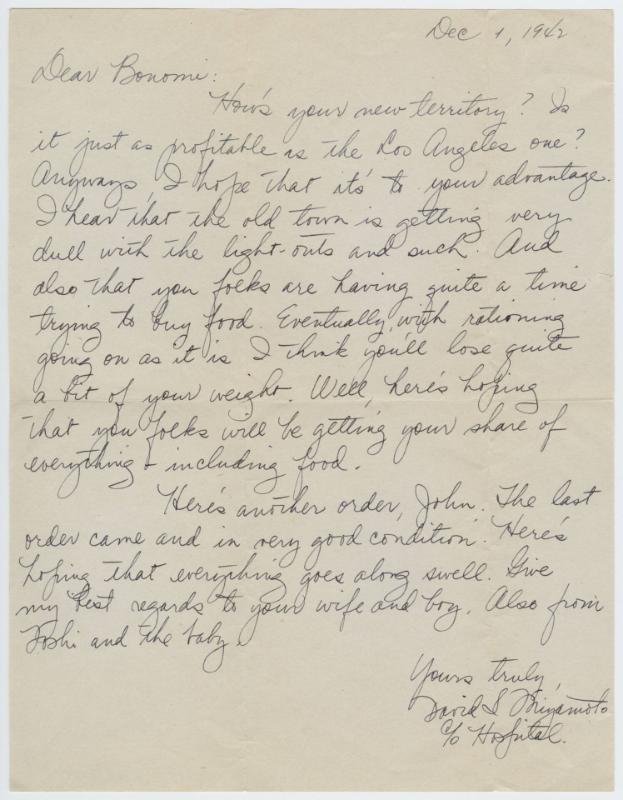 Dec 1, 1942
Dear Bonomi:
How's your new territory? Is
it just as profitable as the Los Angeles one?
Anyways, I hope that it's to your advantage.
I hear that the old town is getting very
dull with the light-outs and such. And
also that you folks are having quite a time
trying to buy food. Eventually, with rationing
going on as it is I think you'll lose quite
a bit of your weight. Well, here's hoping
that you folks will be getting your share of
everything - including food.
Here's another order, John. The last
order came and in very good condition. Here's
hoping that everything goes along swell. Give
my best regards to your wife and boy. Also from
Toshi and the baby.
Yours truly,
David S Miyamoto
c/o Hospital.